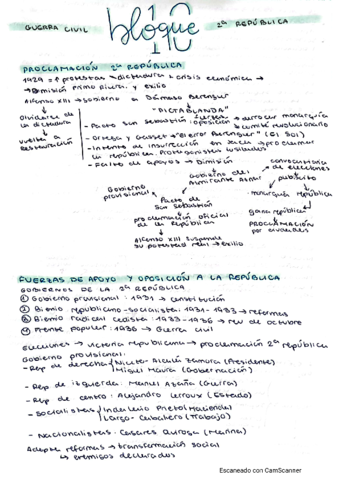 GUERRA CIVIL
bloque 10
2ª REPÚBLICA
PROCLAMACIÓN 2ª REPÚBLICA
1929 = ↑ protestas → dictadura ↓ crisis económica →
→ Dimisión primo Rivera y exilio
Alfonso XIII → gobierno a Dámaso Berenguer
"DICTABLANDA"
olvidarse de
la dictadura
vuelta a
restauración
- Pacto San Sebastián fuerzas oposición → derrocar monarquía
comité revolucionario
- Ortega y Gasset → "El error Berenguer" (El Sol)
- Intento de insurrección en Jaca → proclamar
la república. Protagonistas fusilados
- Falta de apoyos → Dimisión
Gobierno del
Almirante Aznar
convocatoria
de elecciones
plebiscito
monarquía república
gana república
PROCLAMACIÓN
por ciudades
Gobierno
provisional
Pacto de
San Sebastián
proclamación oficial
de la república
Alfonso XIII suspende
su potestad real → exilio
FUERZAS DE APOYO Y OPOSICIÓN A LA REPÚBLICA
GOBIERNOS DE LA 2ª REPÚBLICA
① Gobierno provisional: 1931 → constitución
② Bienio republicano-socialista: 1931-1933 → reformas
③ Bienio radical cedista: 1933-1936 → rev de octubre
④ Frente popular: 1936 → Guerra Civil
Elecciones → victoria republicana → proclamación 2ª república
Gobierno provisional:
- Rep de derecha Niceto Alcalá Zamora (Presidente)
Miguel Maura (Gobernación)
- Rep de izquierda: Manuel Azaña (Guerra)
- Rep de centro: Alejandro Lerroux (Estado)
- Socialistas Indalecio Prieto (Hacienda)
Largo Caballero (Trabajo)
- Nacionalistas: Casares Quiroga (Marina)
Adopta reformas → transformación social
↳ enemigos declarados
Escaneado con CamScanner